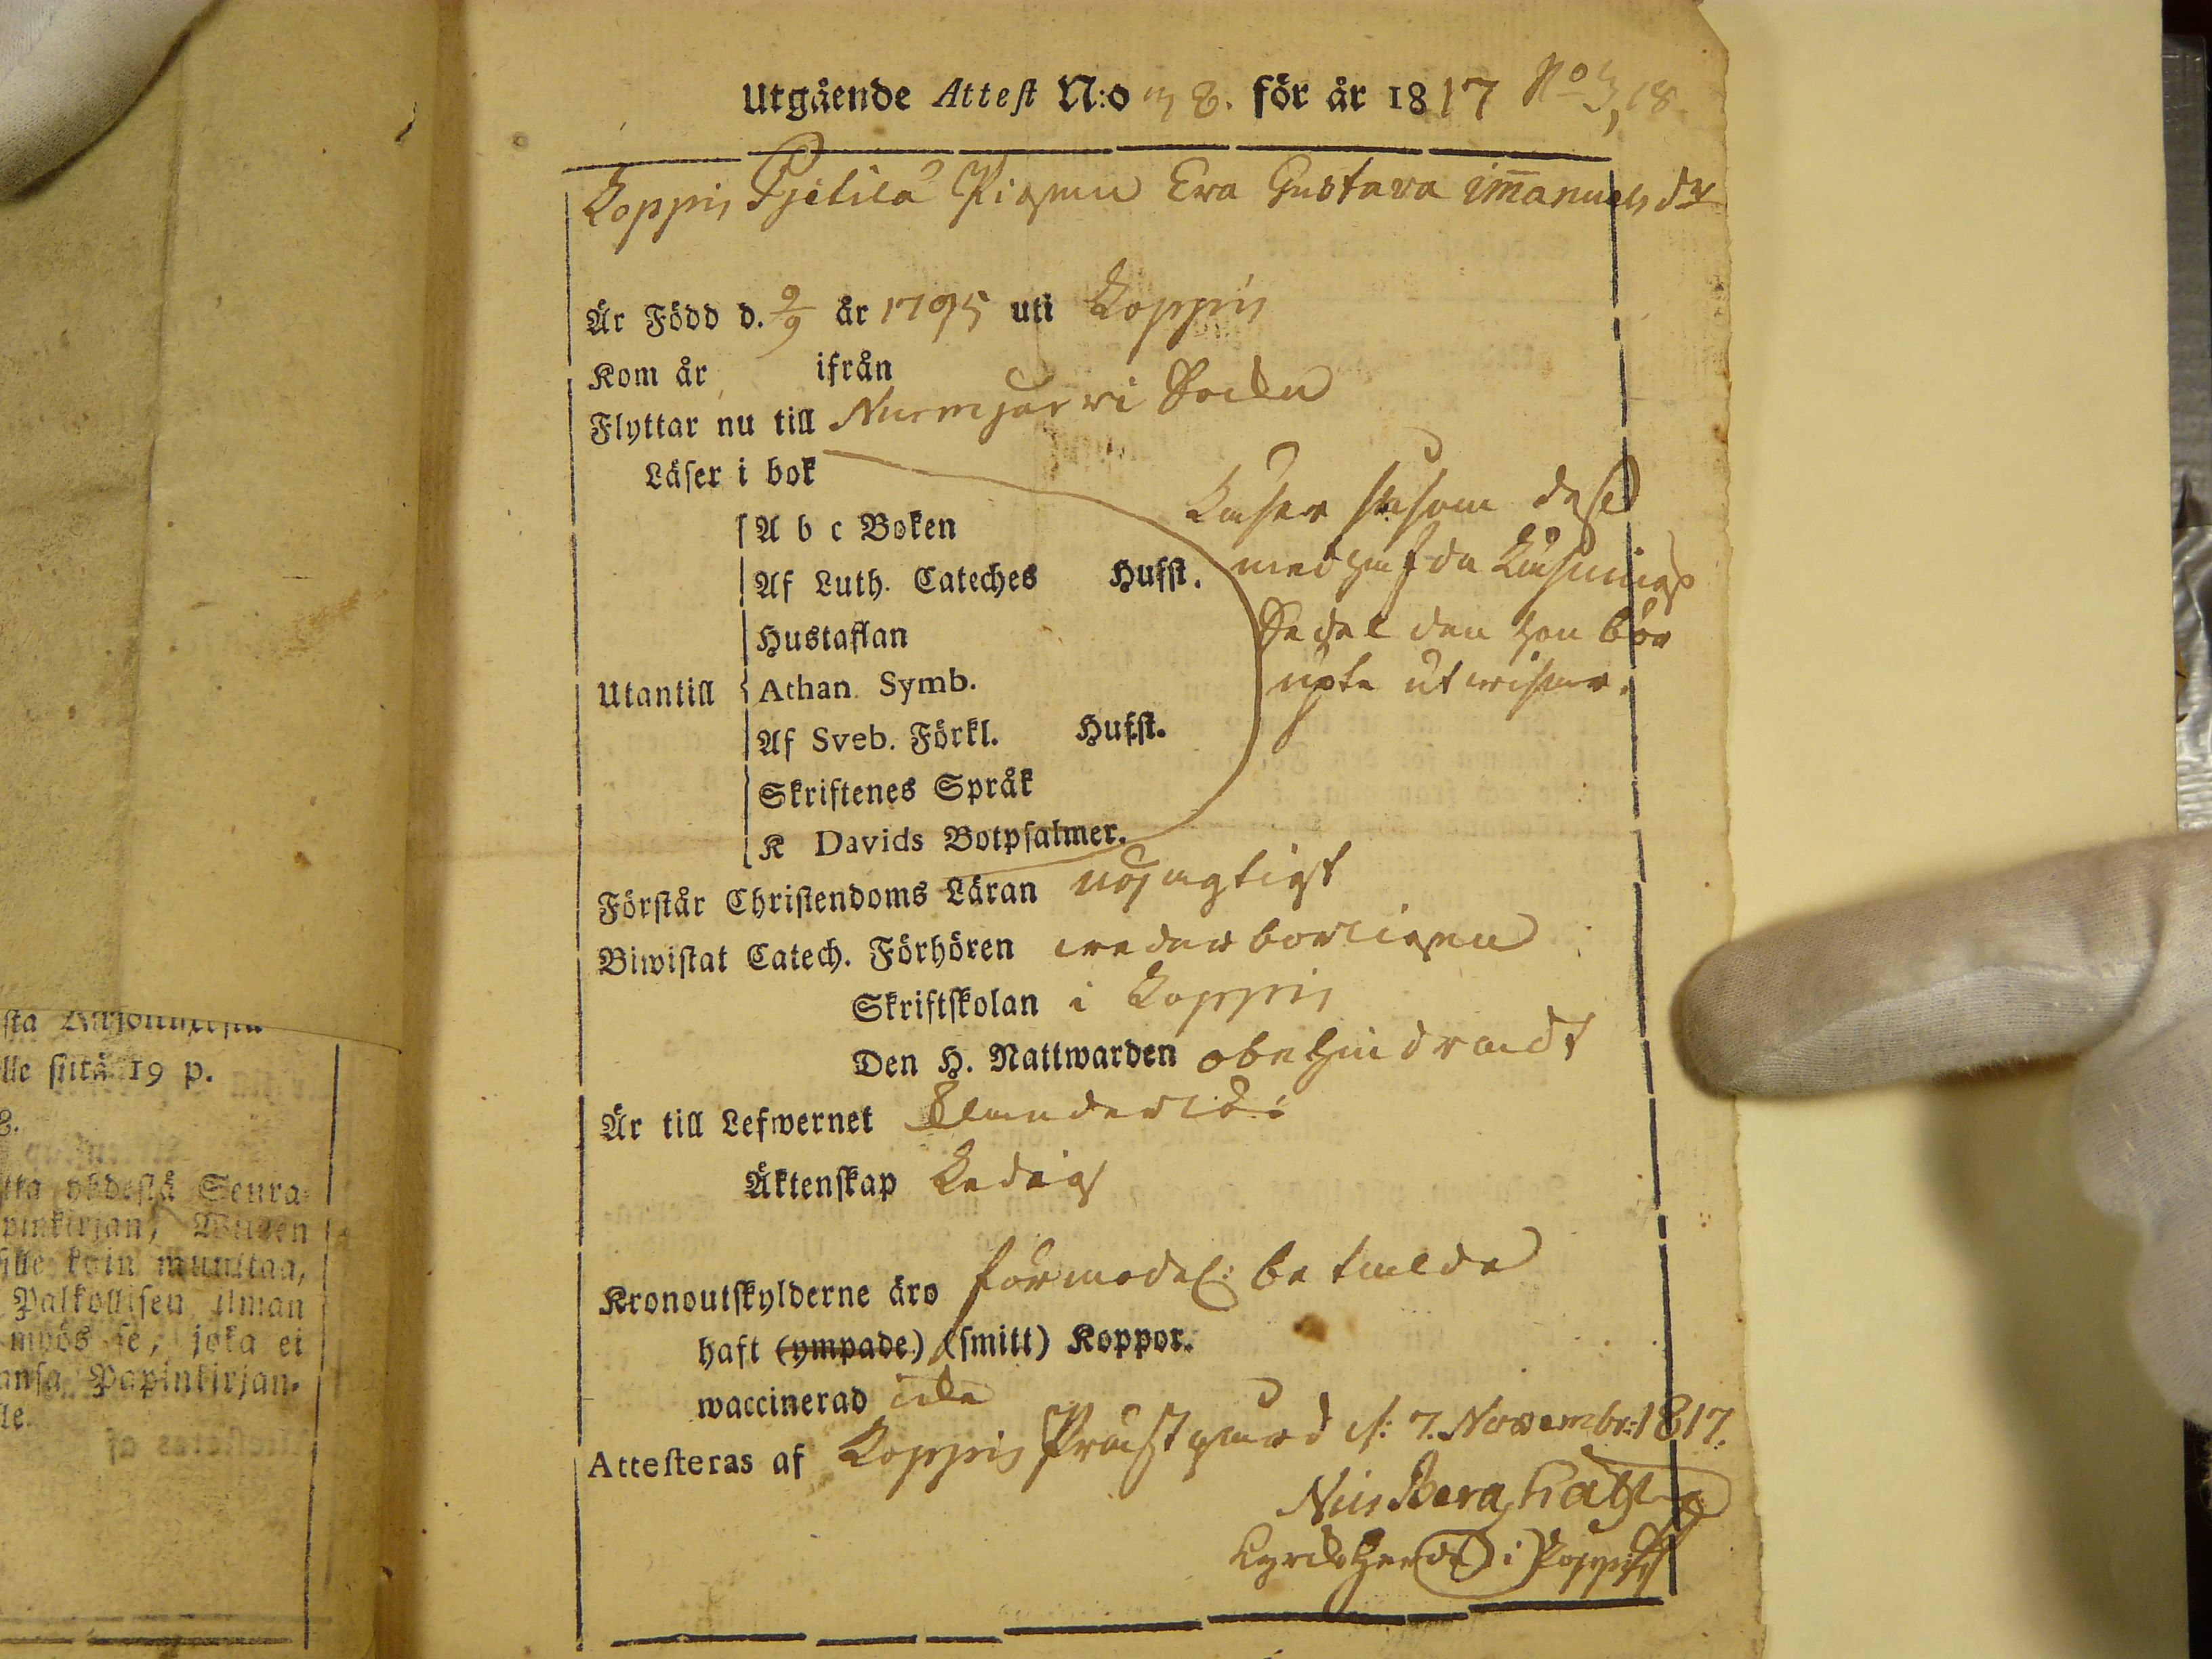 Utgående Attest N:o 38. för år 1817 No 3, 18.
Koppis Pjelilä Pigan Eva Gustava Im̄anuels dr
Är Född d. 9/9 år 1795 uti Koppis
Kom år ifrån
Flyttar nu till Nurmjerwi Sockn
Läser i bok
A b c Boken
Af Luth. Cateches Hufst.
Hustaflan
Utantill Athan. Symb.
Af Sveb. Förkl. Hufst.
Skriftenes Språk
K Davids Botpsalmer.
Läser såsom dess
medhafda Läsnings
Sedel den hon bör
upte utwisar.
Förstår Christendoms Läran nöjagtigt
Biwistat Catech. Förhören wederbörligen
Skriftskolan i Koppis
Den H. Nattwarden obehindradt
Är till Lefwernet
Äktenskap Ledig
Kronoutskylderne äro förmodel: betalde
haft (ympade) (smitt) Koppor.
waccinerad icke
Attesteras af Koppis Prästgård d: 7. Novembr: 1817.
Nils Bergh
Kyrckoherde i
sta
lle siitä 19 p.
8.
Seura-
pinkirjan,
ille kuin muuttaa,
Palkollisen ilman
myös se, joka ei
ansa Papinkirjan-
le.